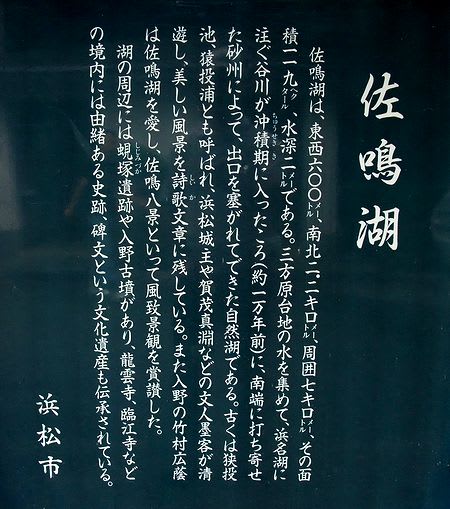 佐鳴湖
佐鳴湖は、東西六〇〇メートル、南北二・二キロメートル、周囲七キロメートル、その面
積一二九ヘクタール、水深二メートルである。三方原台地の水を集めて、浜名湖に
注ぐ谷川が沖積期に入ったころ（約一万年前）に、南端に打ち寄せ
た砂州によって、出口を塞がれてできた自然湖である。古くは狭投
池、猿投浦とも呼ばれ、浜松城主や賀茂真淵などの文人墨客が清
遊し、美しい風景を詩歌文章に残している。また入野の竹村広蔭
は佐鳴湖を愛し、佐鳴八景といって風致景観を賞讃した。
湖の周辺には蜆塚遺跡や入野古墳があり、龍雲寺、臨江寺など
の境内には由緒ある史跡、碑文という文化遺産も伝承されている。
浜松市